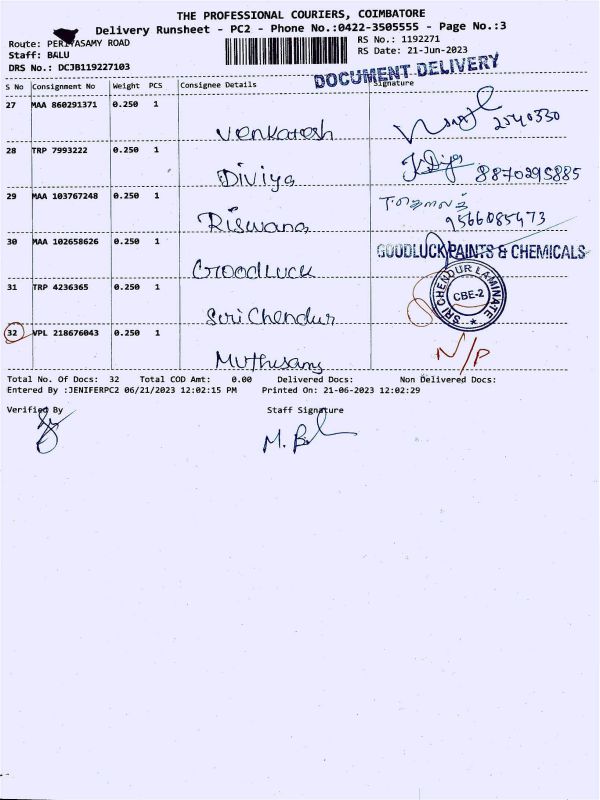 THE PROFESSIONAL COURIERS, COIMBATORE
Delivery Runsheet - PC2 - Phone No.:0422-3505555 - Page No.:3
Route: PERIYASAMY ROAD
RS No.: 1192271
Staff: BALU
RS Date: 21-Jun-2023
DRS No.: DCJB119227103
DOCUMENT DELIVERY
S No Consignment No Weight PCS Consignee Details Signature
27 MAA 860291371 0.250 1
Venkatesh 2540330
28 TRP 7993222 0.250 1
Diviya 8870295885
29 MAA 103767248 0.250 1
Riswana 9566085473
30 MAA 102658626 0.250 1 GOODLUCK PAINTS & CHEMICALS
Goodluck
31 TRP 4236365 0.250 1 SRI CHENDUR LAMINATE CBE-2
Siri Chendur
32 VPL 218676043 0.250 1 N/P
Muthusamy
Total No. Of Docs: 32 Total COD Amt: 0.00 Delivered Docs: Non Delivered Docs:
Entered By :JENIFERPC2 06/21/2023 12:02:15 PM Printed On: 21-06-2023 12:02:29
Verified By Staff Signature